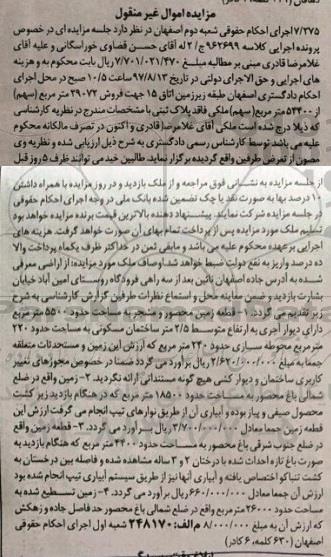 مزایده اموال غیر منقول
۷/۲۷۵ اجرای احکام حقوقی شعبه دوم اصفهان در نظر دارد جلسه مزایده ای در خصوص
پرونده اجرایی کلاسه ۹۶۲۶۹۹ ج/ ۲ له آقای حسن قضاوی خوراسگانی و علیه آقای
غلامرضا قادری مبنی بر مطالبه مبلغ ۷/۷۰۱/۰۲۱/۴۷۰ ریال بابت محکوم به و هزینه
های اجرایی و حق الاجرای دولتی در تاریخ ۹۷/۸/۱۳ ساعت ۱۰/۵ صبح در محل اجرای
احکام دادگستری اصفهان طبقه زیرزمین اتاق ۱۵ جهت فروش ۲۹۰۷۲ متر مربع (سهم)
از ۵۳۴۰۰ متر مربع (سهم) ملکی فاقد پلاک ثبتی با مشخصات مندرج در نظریه کارشناسی
که ذیلا درج شده است ملکی آقای غلامرضا قادری و اکنون در تصرف مالکانه محکوم
علیه می باشد توسط کارشناس رسمی دادگستری به شرح ذیل ارزیابی شده و نظریه وی
مصون از تعرض طرفین واقع گردیده برگزار نماید. طالبین خرید می توانند ظرف ۵ روز قبل
از جلسه مزایده به نشانی فوق مراجعه و از ملک بازدید و در روز مزایده با همراه داشتن
۱۰ درصد بها به صورت نقد یا چک تضمین شده بانک ملی در وجه اجرای احکام حقوقی
در جلسه مزایده شرکت نمایند. پیشنهاد دهنده بالاترین قیمت برنده مزایده خواهد بود
تسلیم ملک مورد مزایده پس از پرداخت تمام بهای آن صورت خواهد گرفت. هزینه های
اجرایی برعهده محکوم علیه می باشد و مابقی ثمن در حداکثر ظرف یکماه پرداخت والا
ده درصد واریز به نفع دولت ضبط خواهد شد. اوصاف ملک مورد مزایده: از اراضی معرفی
شده به آدرس جاده اصفهان نائین بعد از سه راهی فرودگاه روستای امین آباد خیابان
بشارت بازدید و ضمن معاینه محل و استماع نظرات طرفین گزارش کارشناسی به شرح
زیر تقدیم می گردد. ۱- قطعه زمین محصور و مشجر به مساحت حدود ۵۵۰۰ متر مربع
دارای دیوار آجری به ارتفاع متوسط ۲/۵ متر ساختمان مسکونی به مساحت حدود ۲۲۰
متر مربع محوطه سازی حدود ۲۴۰ متر مربع که ارزش این زمین و مستحدثات متعلقه
جمعا به مبلغ ۲/۶۲۰/۰۰۰/۰۰۰ ریال برآورد می گردد ضمنا در خصوص مجوزهای تغییر
کاربری ساختمان و دیوار کشی هیچ گونه مستنداتی ارائه نگردید. ۲- زمین واقع در ضلع
شمالی باغ محصور به مساحت حدود ۱۸۵۰۰ متر مربع که در هنگام بازدید زیر کشت
محصول صیفی و پیاز بوده و آبیاری آن از طریق نوارهای تیپ انجام می گرفت ارزش این
قطعه زمین جمعا معادل ۳/۷۰۰/۰۰۰/۰۰۰ ریال برآورد می گردد. ۳- قطعه زمین واقع
در ضلع جنوب شرقی باغ محصور به مساحت حدود ۴۴۰۰ متر مربع که هنگام بازدید به
صورت باغ تازه احداث شده با درختان ۲ و ۳ ساله مشاهده شده و فاصله بین درختان به
کشت تنباکو اختصاص یافته و آبیاری آنها نیز از طریق سیستم آبیاری تیپ انجام شده بود
ارزش آن جمعا معادل ۶۶۰/۰۰۰/۰۰۰ ریال برآورد می گردد. ۴- زمین تسطیح شده به
مساحت حدود ۲۶۰۰۰ متر مربع واقع در ضلع شمالی باغ محصور حد فاصل جاده و زهکش
که ارزش آن به مبلغ ۸/۰۰۰/۰۰۰ م الف: ۲۴۸۱۷۰ شعبه اول اجرای احکام حقوقی
اصفهان (۶۳۰ کلمه، ۶ کادر)